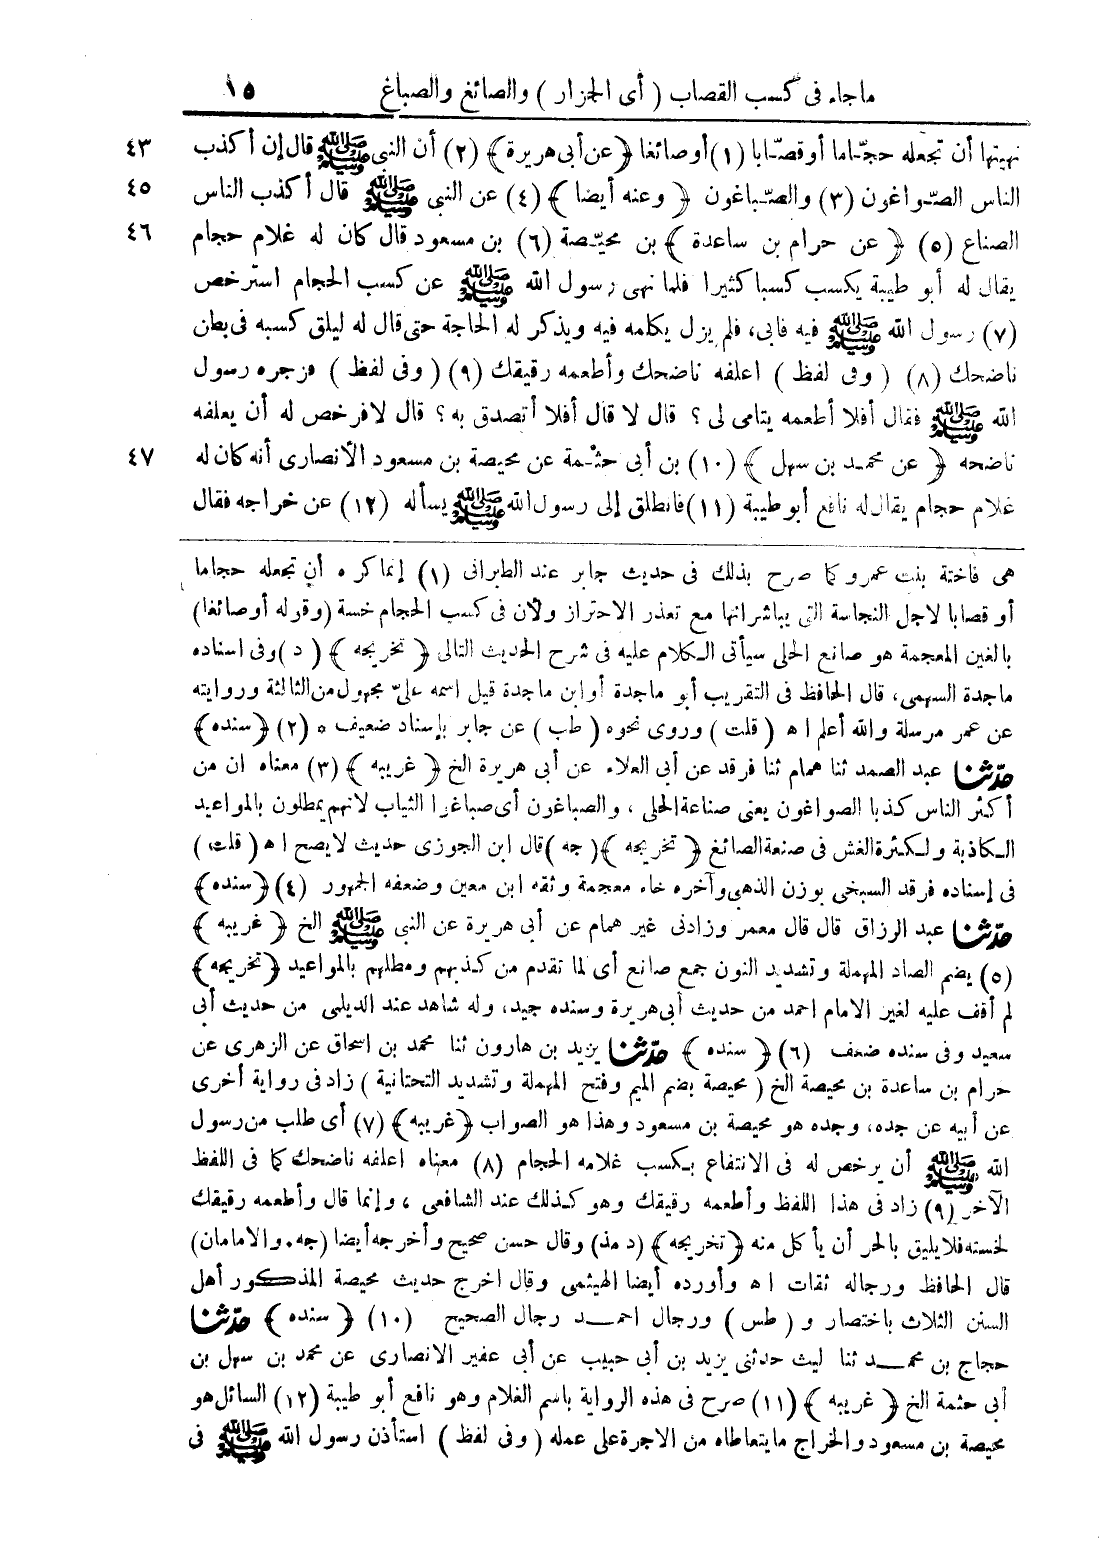 ماجاء فى كسب القصاب ( أى الجزار ) والصائغ والصباغ ١٥
نهيتها أن تجعله حجّاما أوقصّابا (١) أوصائغا ﴿عن أبى هريرة﴾ (٢) أن النبى ﷺ قال إن أكذب ٤٣
الناس الصّواغون (٣) والصّباغون ﴿ وعنه أيضا ﴾ (٤) عن النبى ﷺ قال أكذب الناس ٤٥
الصناع (٥) ﴿ عن حرام بن ساعدة ﴾ بن محيّصة (٦) بن مسعود قال كان له غلام حجام ٤٦
يقال له أبو طيبة يكسب كسبا كثيرا فلما نهى رسول الله ﷺ عن كسب الحجام استرخص
(٧) رسول الله ﷺ فيه فابى، فلم يزل يكلمه فيه ويذكر له الحاجة حتى قال له ليلق كسبه فى بطن
ناضحك (٨) ( وفى لفظ ) اعلفه ناضحك وأطعمه رقيقك (٩) ( وفى لفظ ) فزجره رسول
الله ﷺ فقال أفلا أطعمه يتامى لى ؟ قال لا قال أفلا أتصدق به ؟ قال لا فرخص له أن يعلفه
ناضحه ﴿ عن محمد بن سهل ﴾ (١٠) بن أبى حثْمة عن محيصة بن مسعود الأنصارى أنه كان له ٤٧
غلام حجام يقال له نافع أبو طيبة (١١) فانطلق إلى رسول الله ﷺ يسأله (١٢) عن خراجه فقال
هى فاختة بنت عمرو كما صرح بذلك فى حديث جابر عند الطبرانى (١) إنما كره أن تجعله حجاما
أو قصابا لاجل النجاسة التى يباشرانها مع تعذر الاحتراز ولان فى كسب الحجام خسة (وقوله أوصائغا)
بالغين المعجمة هو صانع الحلى سيأتى الكلام عليه فى شرح الحديث التالى ﴿ تخريجه ﴾ ( د ) وفى اسناده
ماجدة السهمى، قال الحافظ فى التقريب أبو ماجدة أو ابن ماجدة قيل اسمه علىّ مجهول من الثالثة وروايته
عن عمر مرسلة والله أعلم اه ( قلت ) وروى نحوه ( طب ) عن جابر بإسناد ضعيف ه (٢) ﴿ سنده ﴾
حدّثنا عبد الصمد ثنا همام ثنا فرقد عن أبى العلاء عن أبى هريرة الخ ﴿ غريبه ﴾ (٣) معناه ان من
أكثر الناس كذبا الصواغون يعنى صناعة الحلى ، والصباغون أى صباغوا الثياب لانهم يمطلون بالمواعيد
الكاذبة ولكثرة الغش فى صنعة الصائغ ﴿ تخريجه ﴾ ( جه ) قال ابن الجوزى حديث لا يصح اه ( قلت )
فى إسناده فرقد السبخى بوزن الذهبى وآخره خاء معجمة وثقه ابن معين وضعفه الجمهور (٤) ﴿ سنده ﴾
حدّثنا عبد الرزاق قال قال معمر وزادنى غير همام عن أبى هريرة عن النبى ﷺ الخ ﴿ غريبه ﴾
(٥) بضم الصاد المهملة وتشديد النون جمع صانع أى لما تقدم من كذبهم ومطلهم بالمواعيد ﴿ تخريجه ﴾
لم أقف عليه لغير الامام احمد من حديث أبى هريرة وسنده جيد، وله شاهد عند الديلمى من حديث أبى
سعيد وفى سنده ضعف (٦) ﴿ سنده ﴾ حدّثنا يزيد بن هارون ثنا محمد بن اسحاق عن الزهرى عن
حرام بن ساعدة بن محيصة الخ ( محيصة بضم الميم وفتح المهملة وتشديد التحتانية ) زاد فى رواية أخرى
عن أبيه عن جده، وجده هو محيصة بن مسعود وهذا هو الصواب ﴿ غريبه ﴾ (٧) أى طلب من رسول
الله ﷺ أن يرخص له فى الانتفاع بكسب غلامه الحجام (٨) معناه اعلفه ناضحك كما فى اللفظ
الآخر (٩) زاد فى هذا اللفظ وأطعمه رقيقك وهو كذلك عند الشافعى ، وإنما قال وأطعمه رقيقك
لخسته فلا يليق بالحر أن يأكل منه ﴿ تخريجه ﴾ (د مذ) وقال حسن صحيح وأخرجه أيضا (جه. والامامان)
قال الحافظ ورجاله ثقات اه وأورده أيضا الهيثمى وقال اخرج حديث محيصة المذكور أهل
السنن الثلاث باختصار و ( طس ) ورجال احمد رجال الصحيح (١٠) ﴿ سنده ﴾ حدّثنا
حجاج بن محمد ثنا ليث حدثنى يزيد بن أبى حبيب عن أبى عفير الانصارى عن محمد بن سهل بن
أبى حثمة الخ ﴿ غريبه ﴾ (١١) صرح فى هذه الرواية باسم الغلام وهو نافع أبو طيبة (١٢) السائل هو
محيصة بن مسعود والخراج ما يتعاطاه من الاجرة على عمله ( وفى لفظ ) استأذن رسول الله ﷺ فى